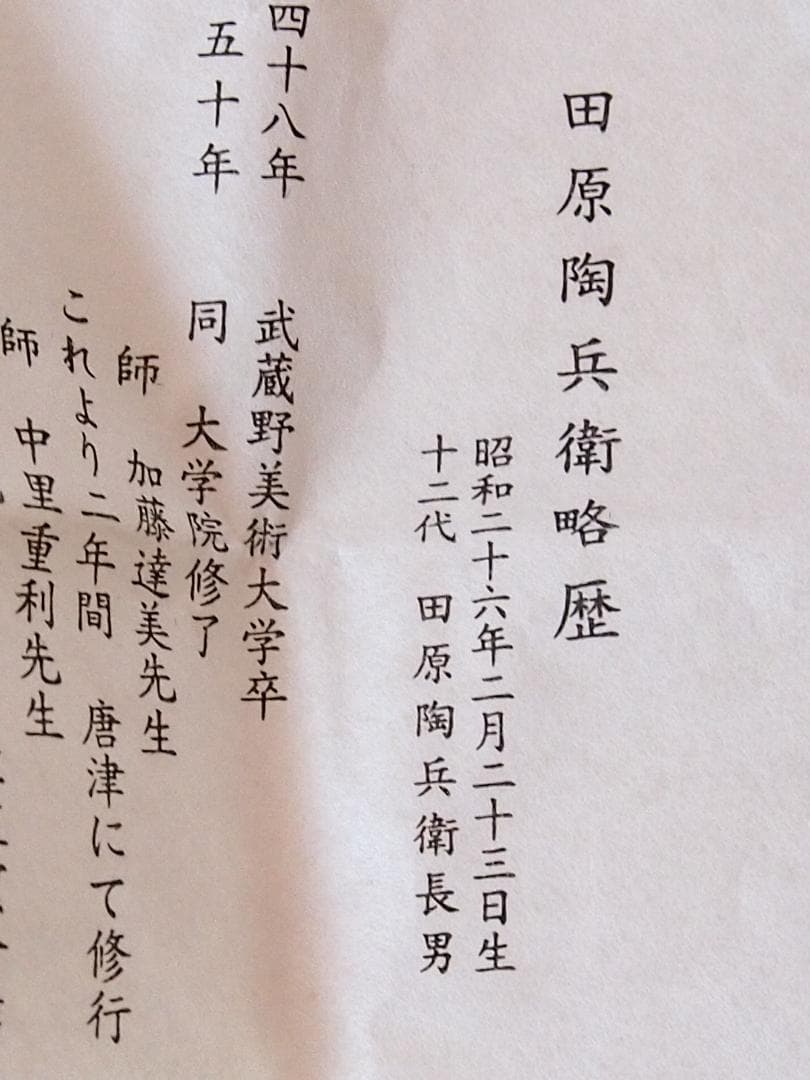 田原陶兵衛略歴
昭和二十六年二月二十三日生
十二代 田原陶兵衛長男
四十八年 武蔵野美術大学卒
五十年 同 大学院修了
師 加藤達美先生
これより二年間 唐津にて修行
師 中里重利先生